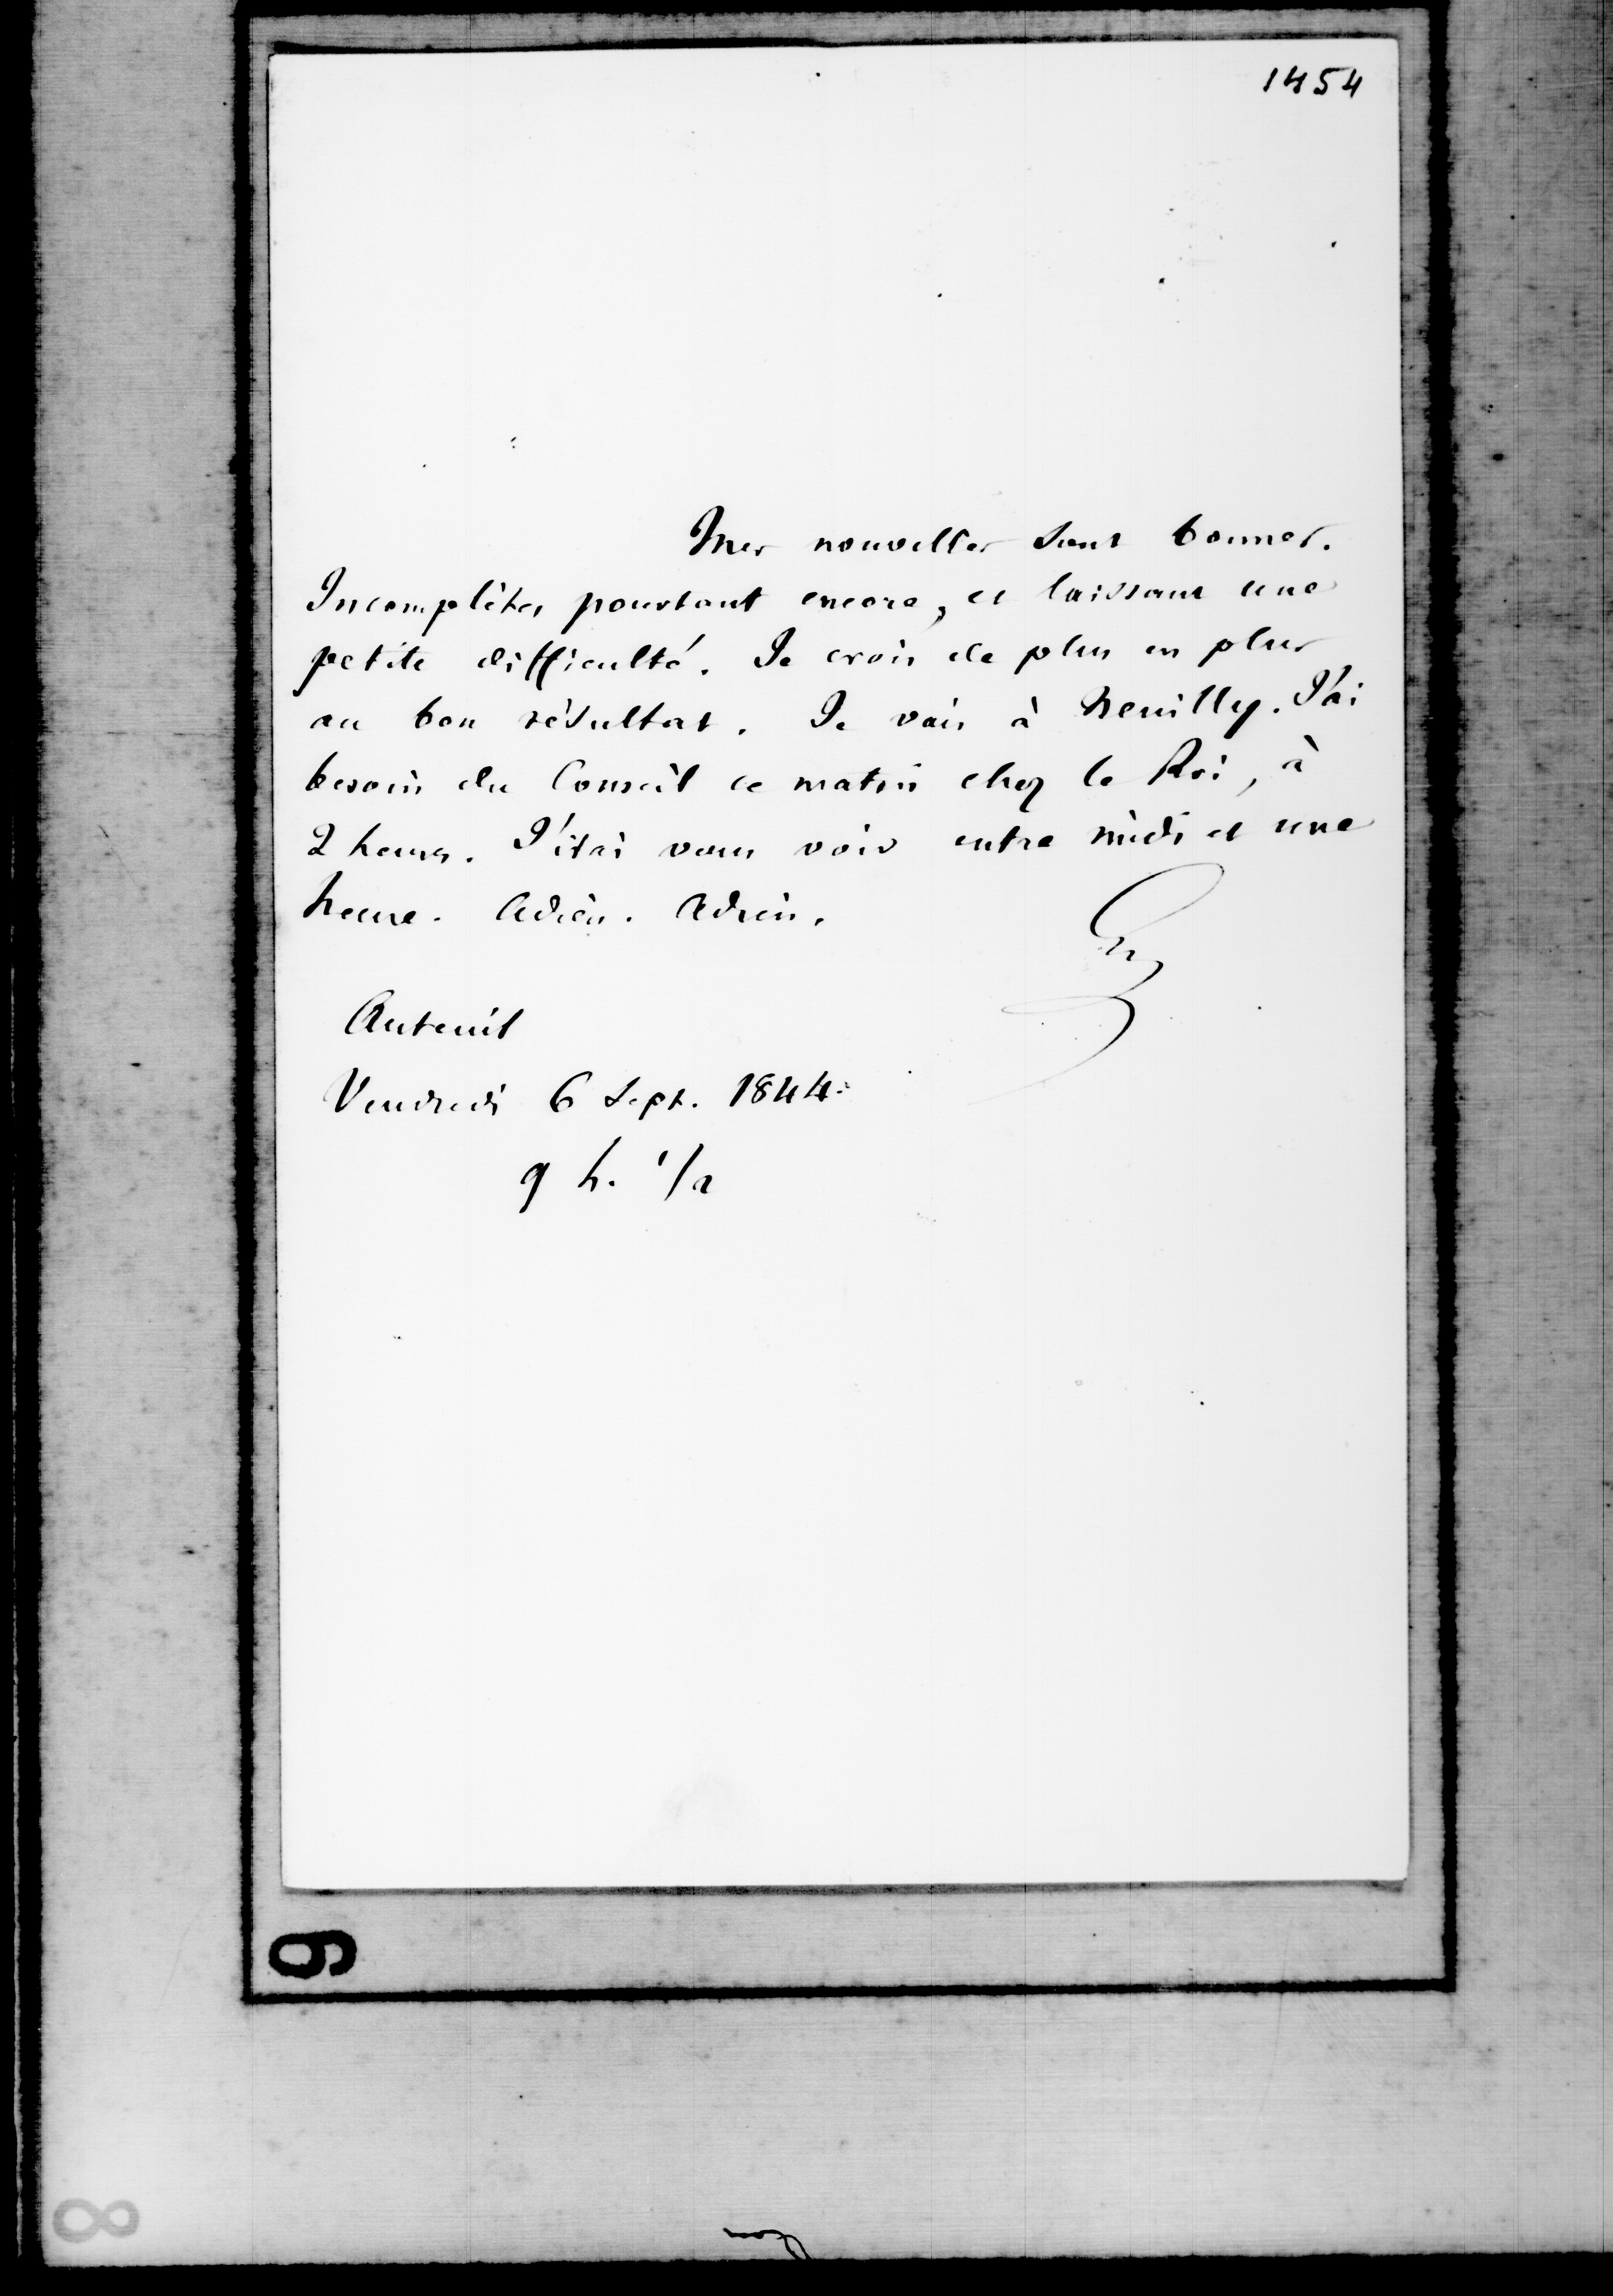 1454
Mes nouvelles sont bonnes.
Incomplètes pourtant encore, et laissant une
petite difficulté. Je crois de plus en plus
au bon résultat. Je vais à Neuilly. J'ai
besoin du Conseil ce matin chez le Roi, à
2 heures. J'irai vous voir entre midi et une
heure. Adieu. Adieu.
G
Auteuil
Vendredi 6 Sept. 1844.
9 h. 1/2
9
8